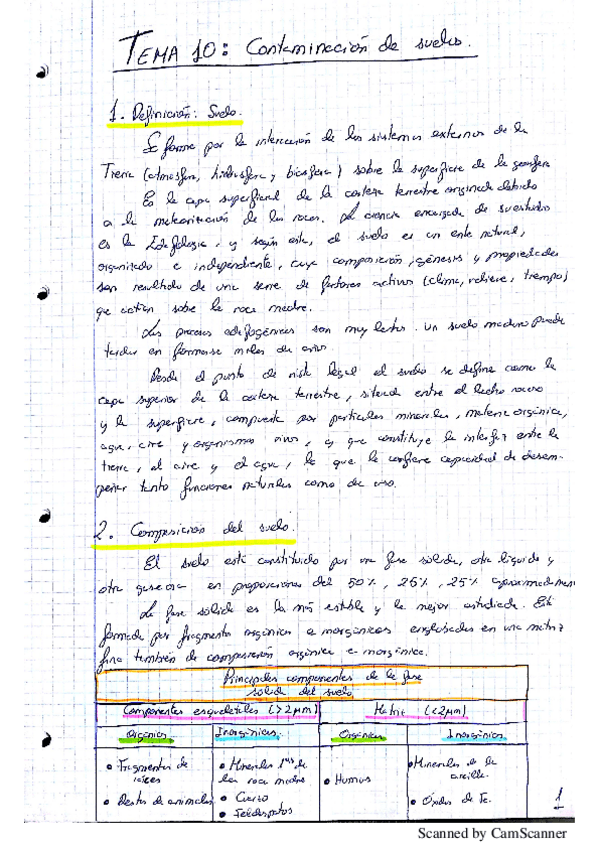 TEMA 10: Contaminación de suelos.
1. Definición: Suelo.
Se forma por la interacción de los sistemas externos de la
Tierra (atmosfera, hidrosfera y biosfera) sobre la superficie de la geosfera
Es la capa superficial de la corteza terrestre originada debido
a la meteorización de las rocas. La ciencia encargada de su estudio
es la Edafología, y según esta, el suelo es un ente natural,
organizado e independiente, cuya composición, génesis y propiedades
son resultado de una serie de factores activos (clima, relieve, tiempo)
que actúan sobre la roca madre.
Los procesos edafogénicos son muy lentos. Un suelo maduro puede
tardar en formarse miles de años.
Desde el punto de vista legal el suelo se define como la
capa superior de la corteza terrestre, situada entre el lecho rocoso
y la superficie, compuesta por partículas minerales, materia orgánica,
agua, aire y organismos vivos, y que constituye la interfaz entre la
tierra, el aire y el agua, lo que le confiere capacidad de desem-
peñar tanto funciones naturales como de uso.
2. Composición del suelo.
El suelo está constituido por una fase sólida, otra líquida y
otra gaseosa en proporciones del 50%, 25%, 25%
La fase sólida es la más estable y la mejor estudiada. Está
formada por fragmentos orgánicos e inorgánicos englobados en una matriz
fina también de composición orgánica e inorgánica.
Principales componentes de la fase
solida del suelo
Componentes esqueletales (>2μm) Matriz (<2μm)
Orgánicos Inorgánicos Orgánicos Inorgánicos
• Fragmentos de • Minerales 1ºs de • Humus • Minerales de la
raíces la roca madre arcilla.
• Restos de animales • Cuarzo • Óxidos de Fe.
• Feldespatos
1
Scanned by CamScanner